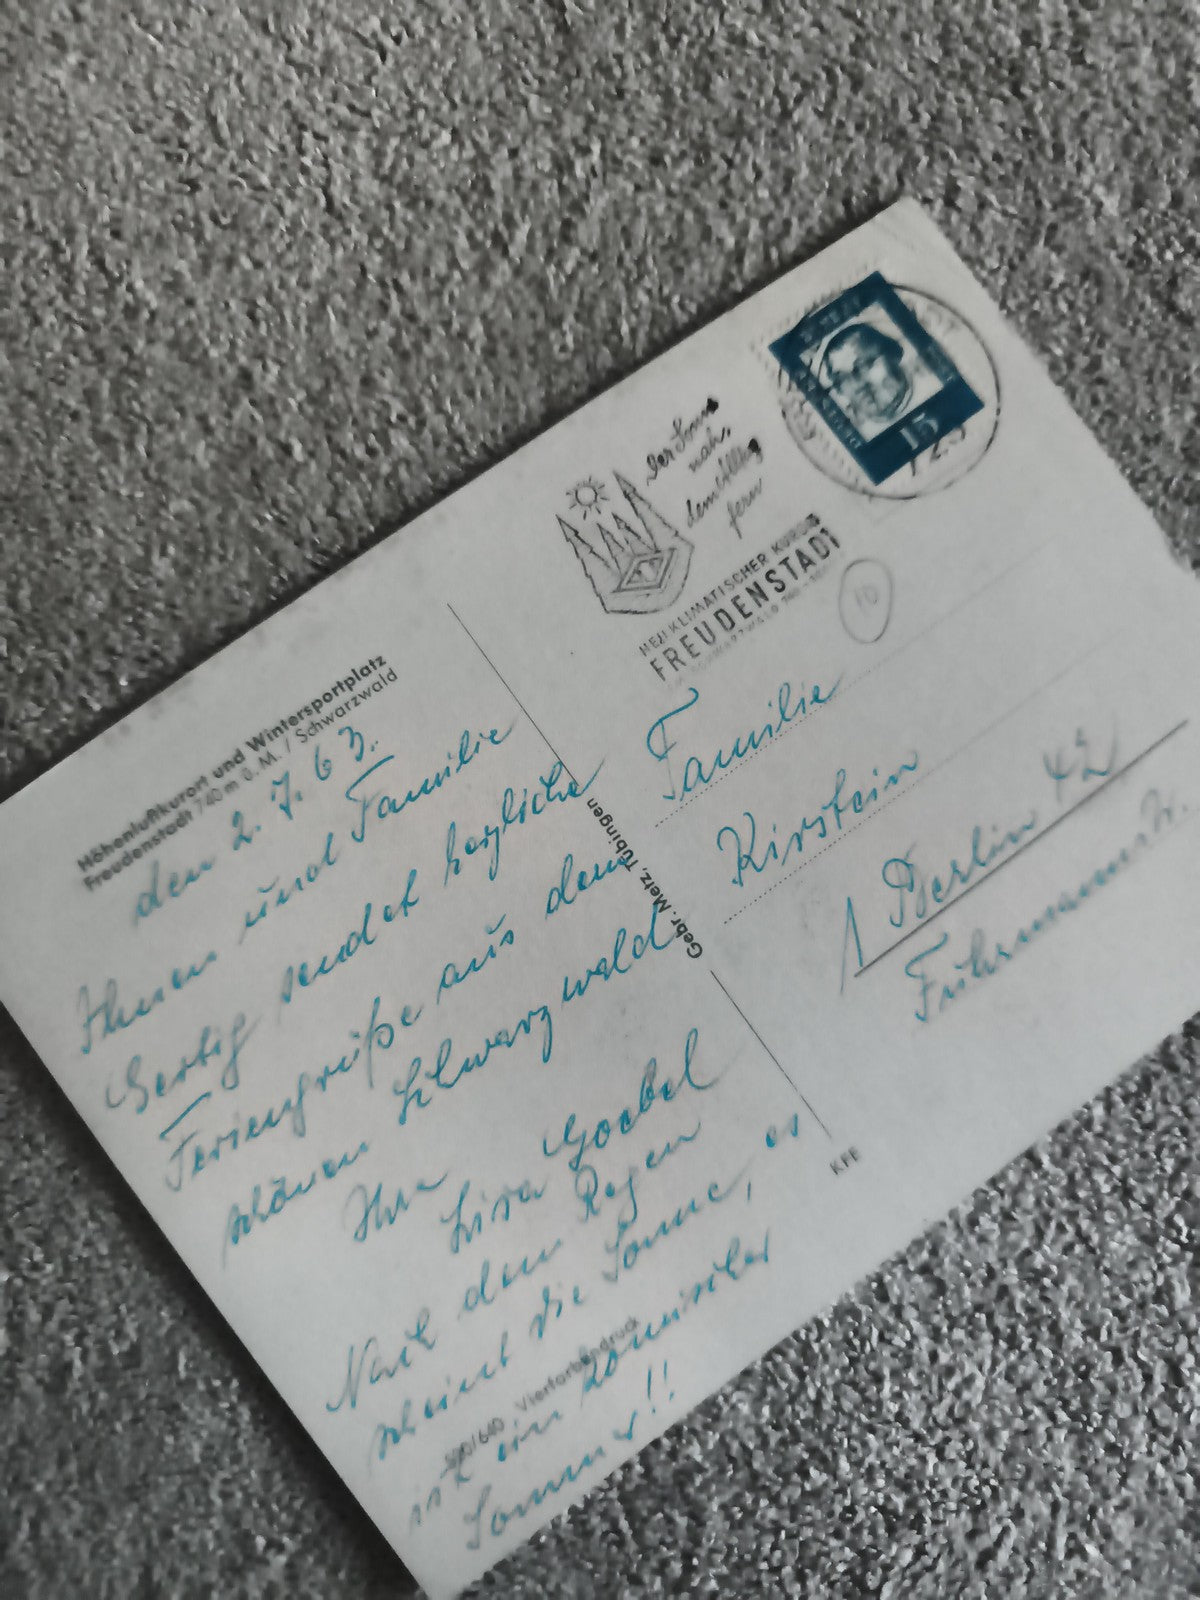 Höhenluftkurort und Wintersportplatz
Freudenstadt 740 m ü. M. / Schwarzwald
den 2. 7. 63.
Ihnen und Familie
sendet herzliche
Feriengrüße aus dem
schönen Schwarzwald
Ihre Goebel
Lisa
Nach dem Regen
scheint die Sonne, es
ist ein komischer
Sommer!!
590/640 Vierfarbendruck
Gebr. Metz, Tübingen
KFE
der Sonne
nah,
dem Alltag
fern
HEILKLIMATISCHER KURORT
FREUDENSTADT
15
10
Familie
Kirstein
1 Berlin 42
Fuhrmannstr.